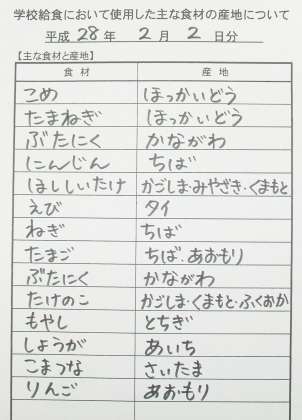 学校給食において使用した主な食材の産地について
平成 28 年 2 月 2 日分
【主な食材と産地】
食 材 産 地
こめ ほっかいどう
たまねぎ ほっかいどう
ぶたにく かながわ
にんじん ちば
ほししいたけ かごしま・みやざき・くまもと
えび タイ
ねぎ ちば
たまご ちば、あおもり
ぶたにく かながわ
たけのこ かごしま・くまもと・ふくおか
もやし とちぎ
しょうが あいち
こまつな さいたま
りんご あおもり